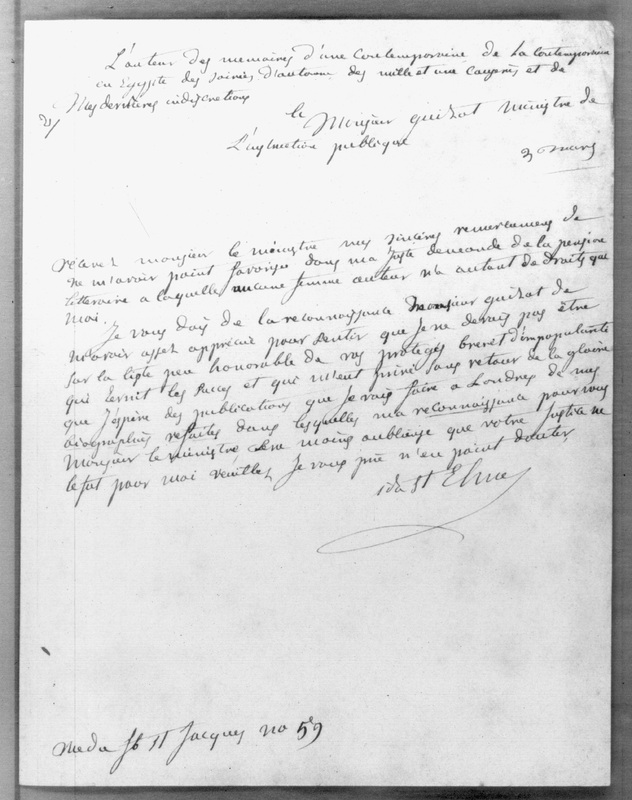 L'auteur des memoires d'une Contemporaine de La Contemporaine
en Egypte des soirées d'automne des mille et une causeries et de
Mes dernieres indiscretions
a Monsieur guizot ministre de
L'instruction publique
30 mars
recevez monsieur le ministre mes sincères remerciemens de
ne m'avoir point favorisée dans ma juste demande de la pension
litteraire a laquelle aucune femme auteur n'a autant de droits que
moi.
Je vous dois de la reconnaissance Monsieur guizot de
m'avoir assez appréciée pour sentir que je ne devais pas être
sur la liste peu honorable de vos protégés brevet d'impopularité
qui ternit les succes et qui m'eut privé sans retour de la gloire
que j'espère des publications que je vais faire a Londres de mes
biographies refaites dans lesquelles ma reconnaissance pour vous
Monsieur le ministre sera moins oublieuse que votre justice ne
le fut pour moi veuillez je vous prie n'en point douter
ida St Elme
rue du fb St Jacques no 59